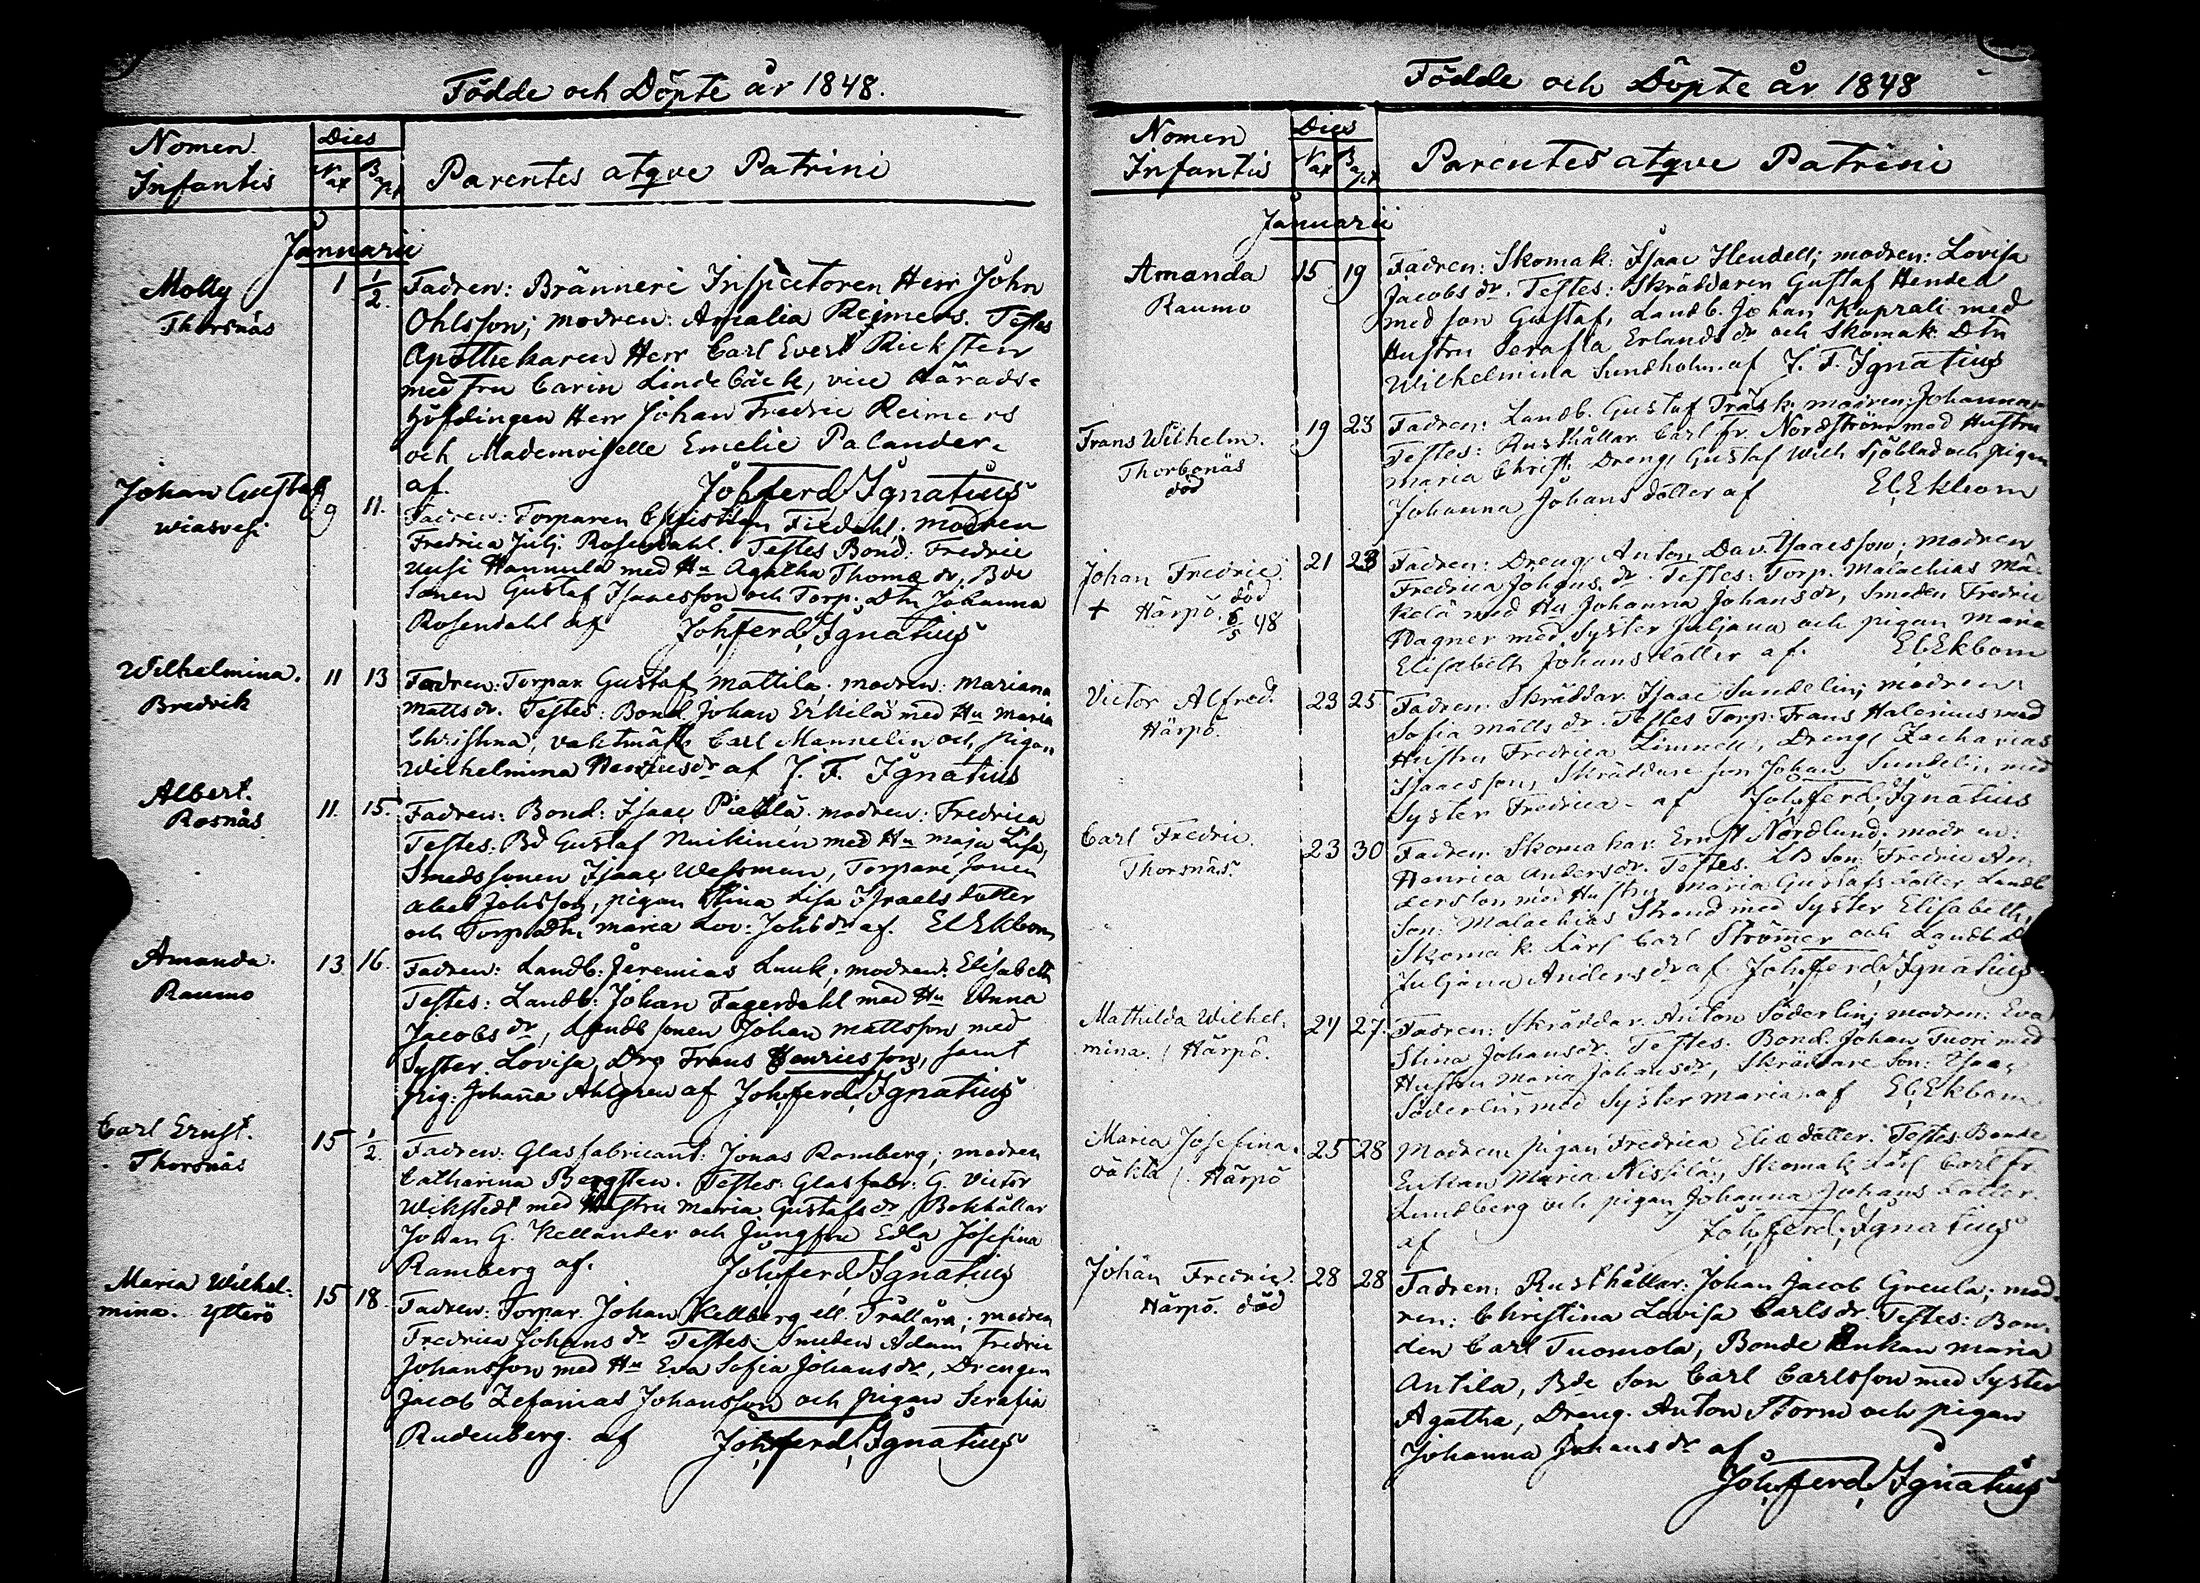 Födde och Döpte år 1848.
Nomen Infantis
Dies
Nat
Bapt
Parentes atqve Patrini
Januarii
Molly
Thorsnäs
1 1/2.
Fadren: Bränneri Inspectoren Herr John
Ohlsson; modren: Amalia Reimers. Testes
Apothekaren Herr Carl Evert Ricksten
med fru Carin Lindebäck, vice Härads-
höfdingen Herr Johan Fredric Reimers
och Mademoiselle Emelie Palander.
af. Joh. Ferd. Ignatius
Johan Gustaf
Wiasvesi
9 11.
Fadren: Torparen Christian Fredahl; modren
Fredrica Julj. Rosendahl. Testes Bond: Fredric
Uusi Hannula med Hu Agatha Thomæ dr, Bde
Sonen Gustaf Isaacsson och Torp. Dtn Johanna
Rosendahl af Joh. Ferd. Ignatius
Wilhelmina.
Bredvik
11 13
Fadren: Torpar. Gustaf Mattila; modren: Mariana
Matts dr. Testes: Bond. Johan Erkilä med Hu Maria
Christina, vaktmäst. Carl Mannelin och pigan
Wilhelmina Henricsdr af J. F. Ignatius
Albert.
Rosnäs
11. 15.
Fadren: Bond: Isaac Pietilä; modren: Fredrica
Testes: Bd Gustaf Nuikinen med Hu Maja Lisa,
Smedssonen Isaac Wessman, Torpare sonen
Abel Johsson, pigan Stina Lisa Israels dotter
och Torp. Dtn Maria Lov: Johsdr af. El Ekbom
Amanda.
Raumo
13 16.
Fadren: Landb: Jeremias Luuk; modren: Elisabeth
Testes: Landb: Johan Fagerdahl med Hu Anna
Jacobs dr, Landb sonen Johan Mattsson med
Syster Lovisa, Drg Frans Henricsson, samt
pig: Johanna Ahlgren af Joh. Ferd. Ignatius
Carl Ernst.
Thorsnäs
15 1/2
Fadren: Glasfabricant: Jonas Ramberg; modren
Catharina Bergsten. Testes: Glasfabr: G. Victor
Wikstedt med Hustru Maria Gustafs dr, Bokhållar
Johan G. Kellander och Jungfru Edla Josefina
Ramberg af. Joh. Ferd. Ignatius
Maria Wilhel-
mina. Ytterö
15 18.
Fadren: Torpar. Johan Kellberg ell. Trällära; modren
Fredrica Johans dr Testes: Smeden Adam Fredric
Johansson med Hu Eva Sofia Johans dr, Drengen
Jacob Zefanias Johansson och pigan Serafia
Rudenberg. af Joh. Ferd. Ignatius
Födde och Döpte år 1848
Nomen Infantis
Dies
Nat
Bapt
Parentes atqve Patrini
Januarii
Amanda
Raumo
15 19
Fadren: Skomak: Isaac Hendell; modren: Lovisa
Jacobs dr. Testes: Skräddaren Gustaf Hendell
med son Gustaf, Landb. Johan Kuprali med
Hustru Serafia Erlands dr och Skomak. Dtn
Wilhelmina Sundholm. af J. F. Ignatius
Frans Wilhelm.
Thorbonäs
död
19 23
Fadren: Landb. Gustaf Träsk; modren: Johanna
Testes: Rusthållar. Carl Fr. Nordström med Hustru
Maria Christ. Dreng Gustaf Wilh Sjöblad och pigan
Johanna Johans dotter af El. Ekbom
Johan Fredric.
+ Härpö. död 6/5 48
21 23
Fadren: Dreng Anton Dav. Isaacsson; modren
Fredrica Johans dr. Testes: Torp. Malachias Mä-
kelä med Hu Johanna Johansdr, Smeden Fredric
Wagner med Syster Juljana och pigan Maria
Elisabeth Johans dotter af. El. Ekbom
Victor Alfred.
Härpö.
23 25
Fadren: Skräddar. Isaac Sundelin; modren:
Sofia Matts dr. Testes Torp: Frans Halenius med
Hustru Fredrica Limnell, Dreng Zacharias
Isaacsson, Skräddare son Johan Sundelin med
Syster Fredrica. af Joh. Ferd. Ignatius
Carl Fredric.
Thorsnäs.
23 30
Fadren: Skomakar. Ernst Nordlund; modren:
Henrica Andersdr. Testes. LB Son: Fredric An-
dersson med Hustru Maria Gustafs dotter Landb
Son: Malachias Strand med Syster Elisabeth,
Skomak. Lärl Carl Strömer och Landb. D
Juljana Anders dr af. Joh. Ferd. Ignatius
Mathilda Wilhel-
mina. / Härpö.
24 27.
Fadren: Skräddar. Anton Söderlin; modren: Eva
Stina Johansdr. Testes. Bond. Johan Tuori med
Hustru Maria Johansdr, Skräddare Son: Isaac
Söderlin med Syster Maria. af El. Ekbom
Maria Josefina.
oäkta / Härpö
25 28
Modren: pigan Fredrica Eliæ dotter. Testes: Bonde
Enkan Maria Nissilä, Skomak. Lärl Carl Fr.
Lundberg och pigan Johanna Johans dotter.
af Joh. Ferd. Ignatius
Johan Fredric.
Härpö. död
28 28
Fadren: Rusthållar: Johan Jacob Greula; mod-
ren: Christina Lovisa Carlsdr. Testes: Bon-
den Carl Tuomola, Bonde Enkan Maria
Antila, Bde Son Carl Carlsson med Syster
Agatha, Dreng. Anton Storm och pigan
Johanna Johansdr af
Joh. Ferd. Ignatius